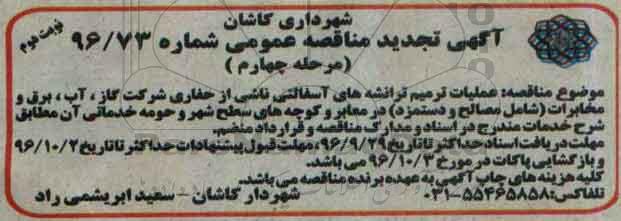 شهرداری کاشان
نوبت دوم
آگهی تجدید مناقصه عمومی شماره ۹۶/۷۳
(مرحله چهارم)
موضوع مناقصه: عملیات ترمیم ترانشه های آسفالتی ناشی از حفاری شرکت گاز، آب، برق و
مخابرات (شامل مصالح و دستمزد) در معابر و کوچه های سطح شهر و حومه خدماتی آن مطابق
شرح خدمات مندرج در اسناد و مدارک مناقصه و قرارداد منضم.
مهلت دریافت اسناد حداکثر تا تاریخ ۹۶/۹/۲۹، مهلت قبول پیشنهادات حداکثر تا تاریخ ۹۶/۱۰/۲
و بازگشایی پاکات در مورخ ۹۶/۱۰/۳ می باشد.
کلیه هزینه های چاپ آگهی به عهده برنده مناقصه می باشد.
تلفاکس: ۵۵۴۶۵۸۵۸-۰۳۱ شهردار کاشان - سعید ابریشمی راد